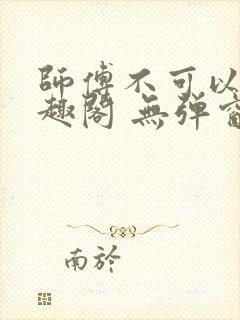 師傅不可以
趣閣 無彈窗
南於